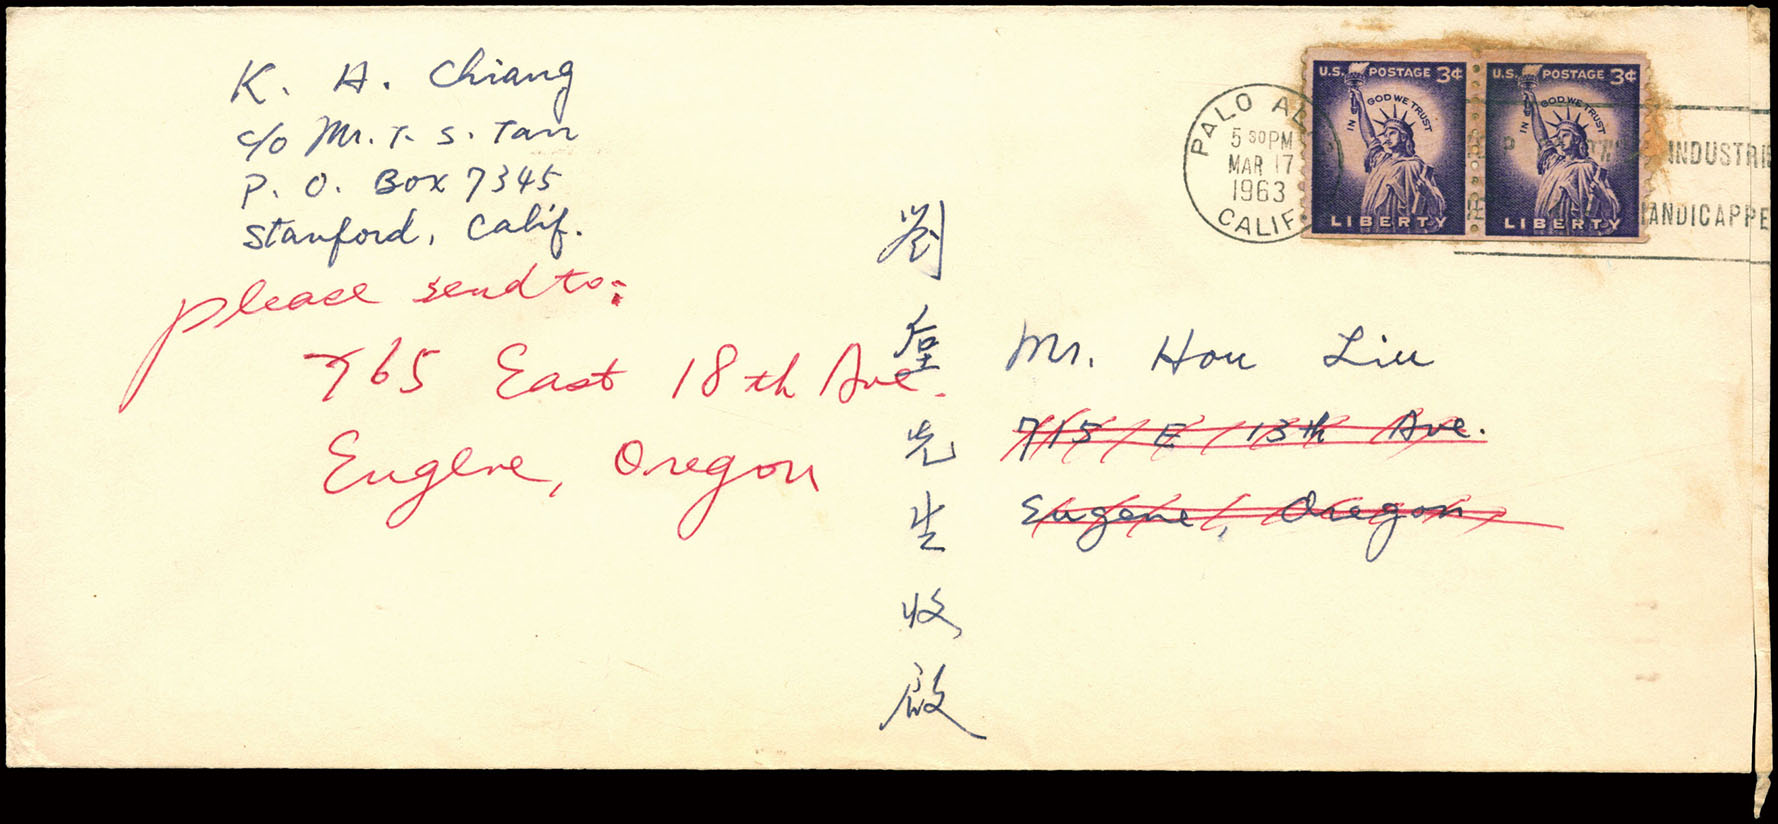 K. H. Chiang
c/o Mr. T. S. Tan
P. O. Box 7345
Stanford, Calif.
please send to:
765 East 18th Ave.
Eugene, Oregon
劉垕先生收啟
Mr. Hou Liu
715 E 13th Ave.
Eugene, Oregon
PALO AL
5 30PM
MAR 17
1963
CALIF
U.S. POSTAGE 3¢
IN GOD WE TRUST
LIBERTY
U.S. POSTAGE 3¢
IN GOD WE TRUST
LIBERTY
INDUSTRI
ANDICAPPE